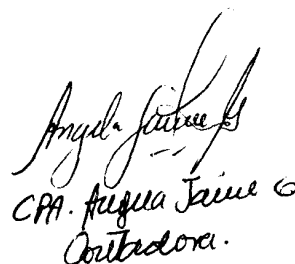 Angela Jaime G
CPA. Angela Jaime G
Contadora.